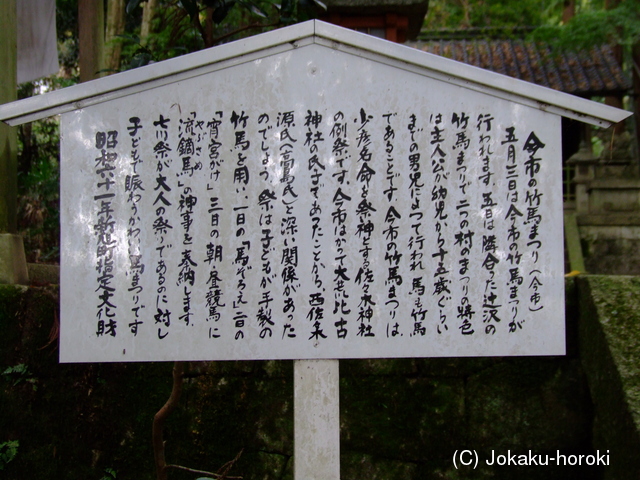 今市の竹馬まつり（今市）
五月三日は今市の竹馬まつりが
行われします。五日は隣合った辻沢の
竹馬まつりで二つの村のまつりの特色
は主人公が幼児から十五歳ぐらい
までの男児によって行われ、馬も竹馬
であることです。今市の竹馬まつりは、
少彦名命を祭神とする佐々木神社
の例祭です。今市はかつて大荒比古
神社の氏子であったことから、西佐々木
源氏（高島氏）と深い関係があった
のでしょう。祭は子どもが手製の
竹馬を用い、一日の「馬ぞろえ」二日の
「宵宮がけ」三日の朝・昼競馬に
「流鏑馬」の神事を奉納します。
やぶさめ
七川祭が大人の祭りであるのに対し
子どもで賑わうかわいい馬まつりです
昭和六十一年新旭町指定文化財
(C) Jokaku-horoki